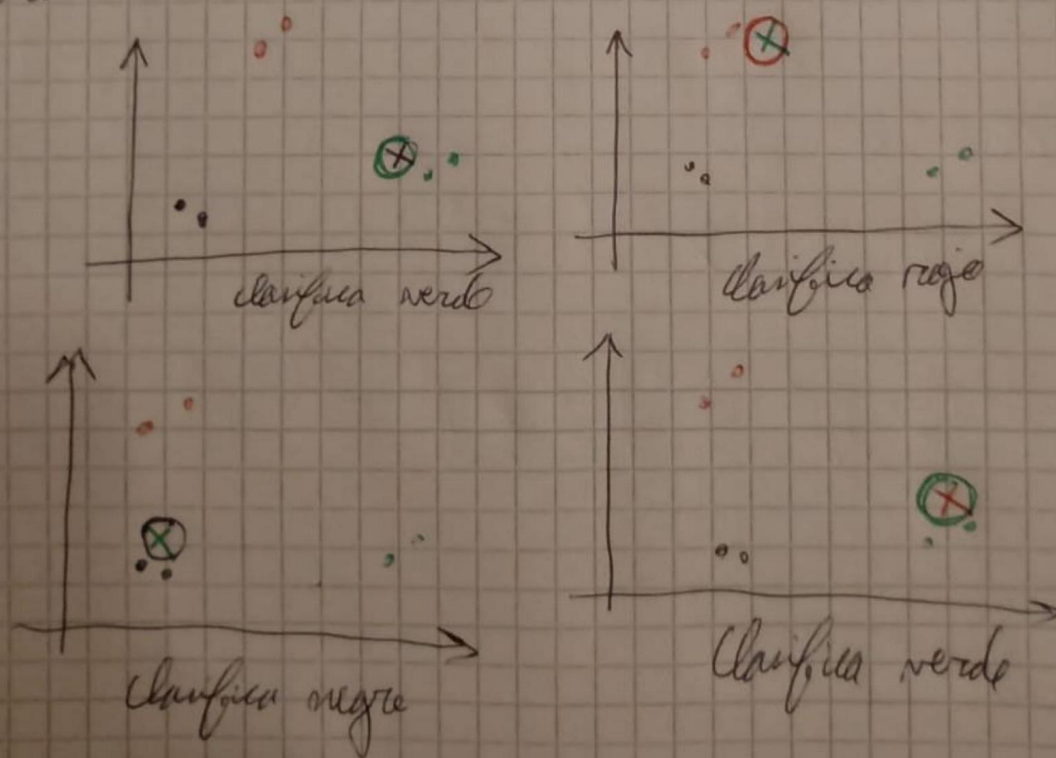 Clasifica verde
Clasifica rojo
Clasifica negro
Clasifica verde